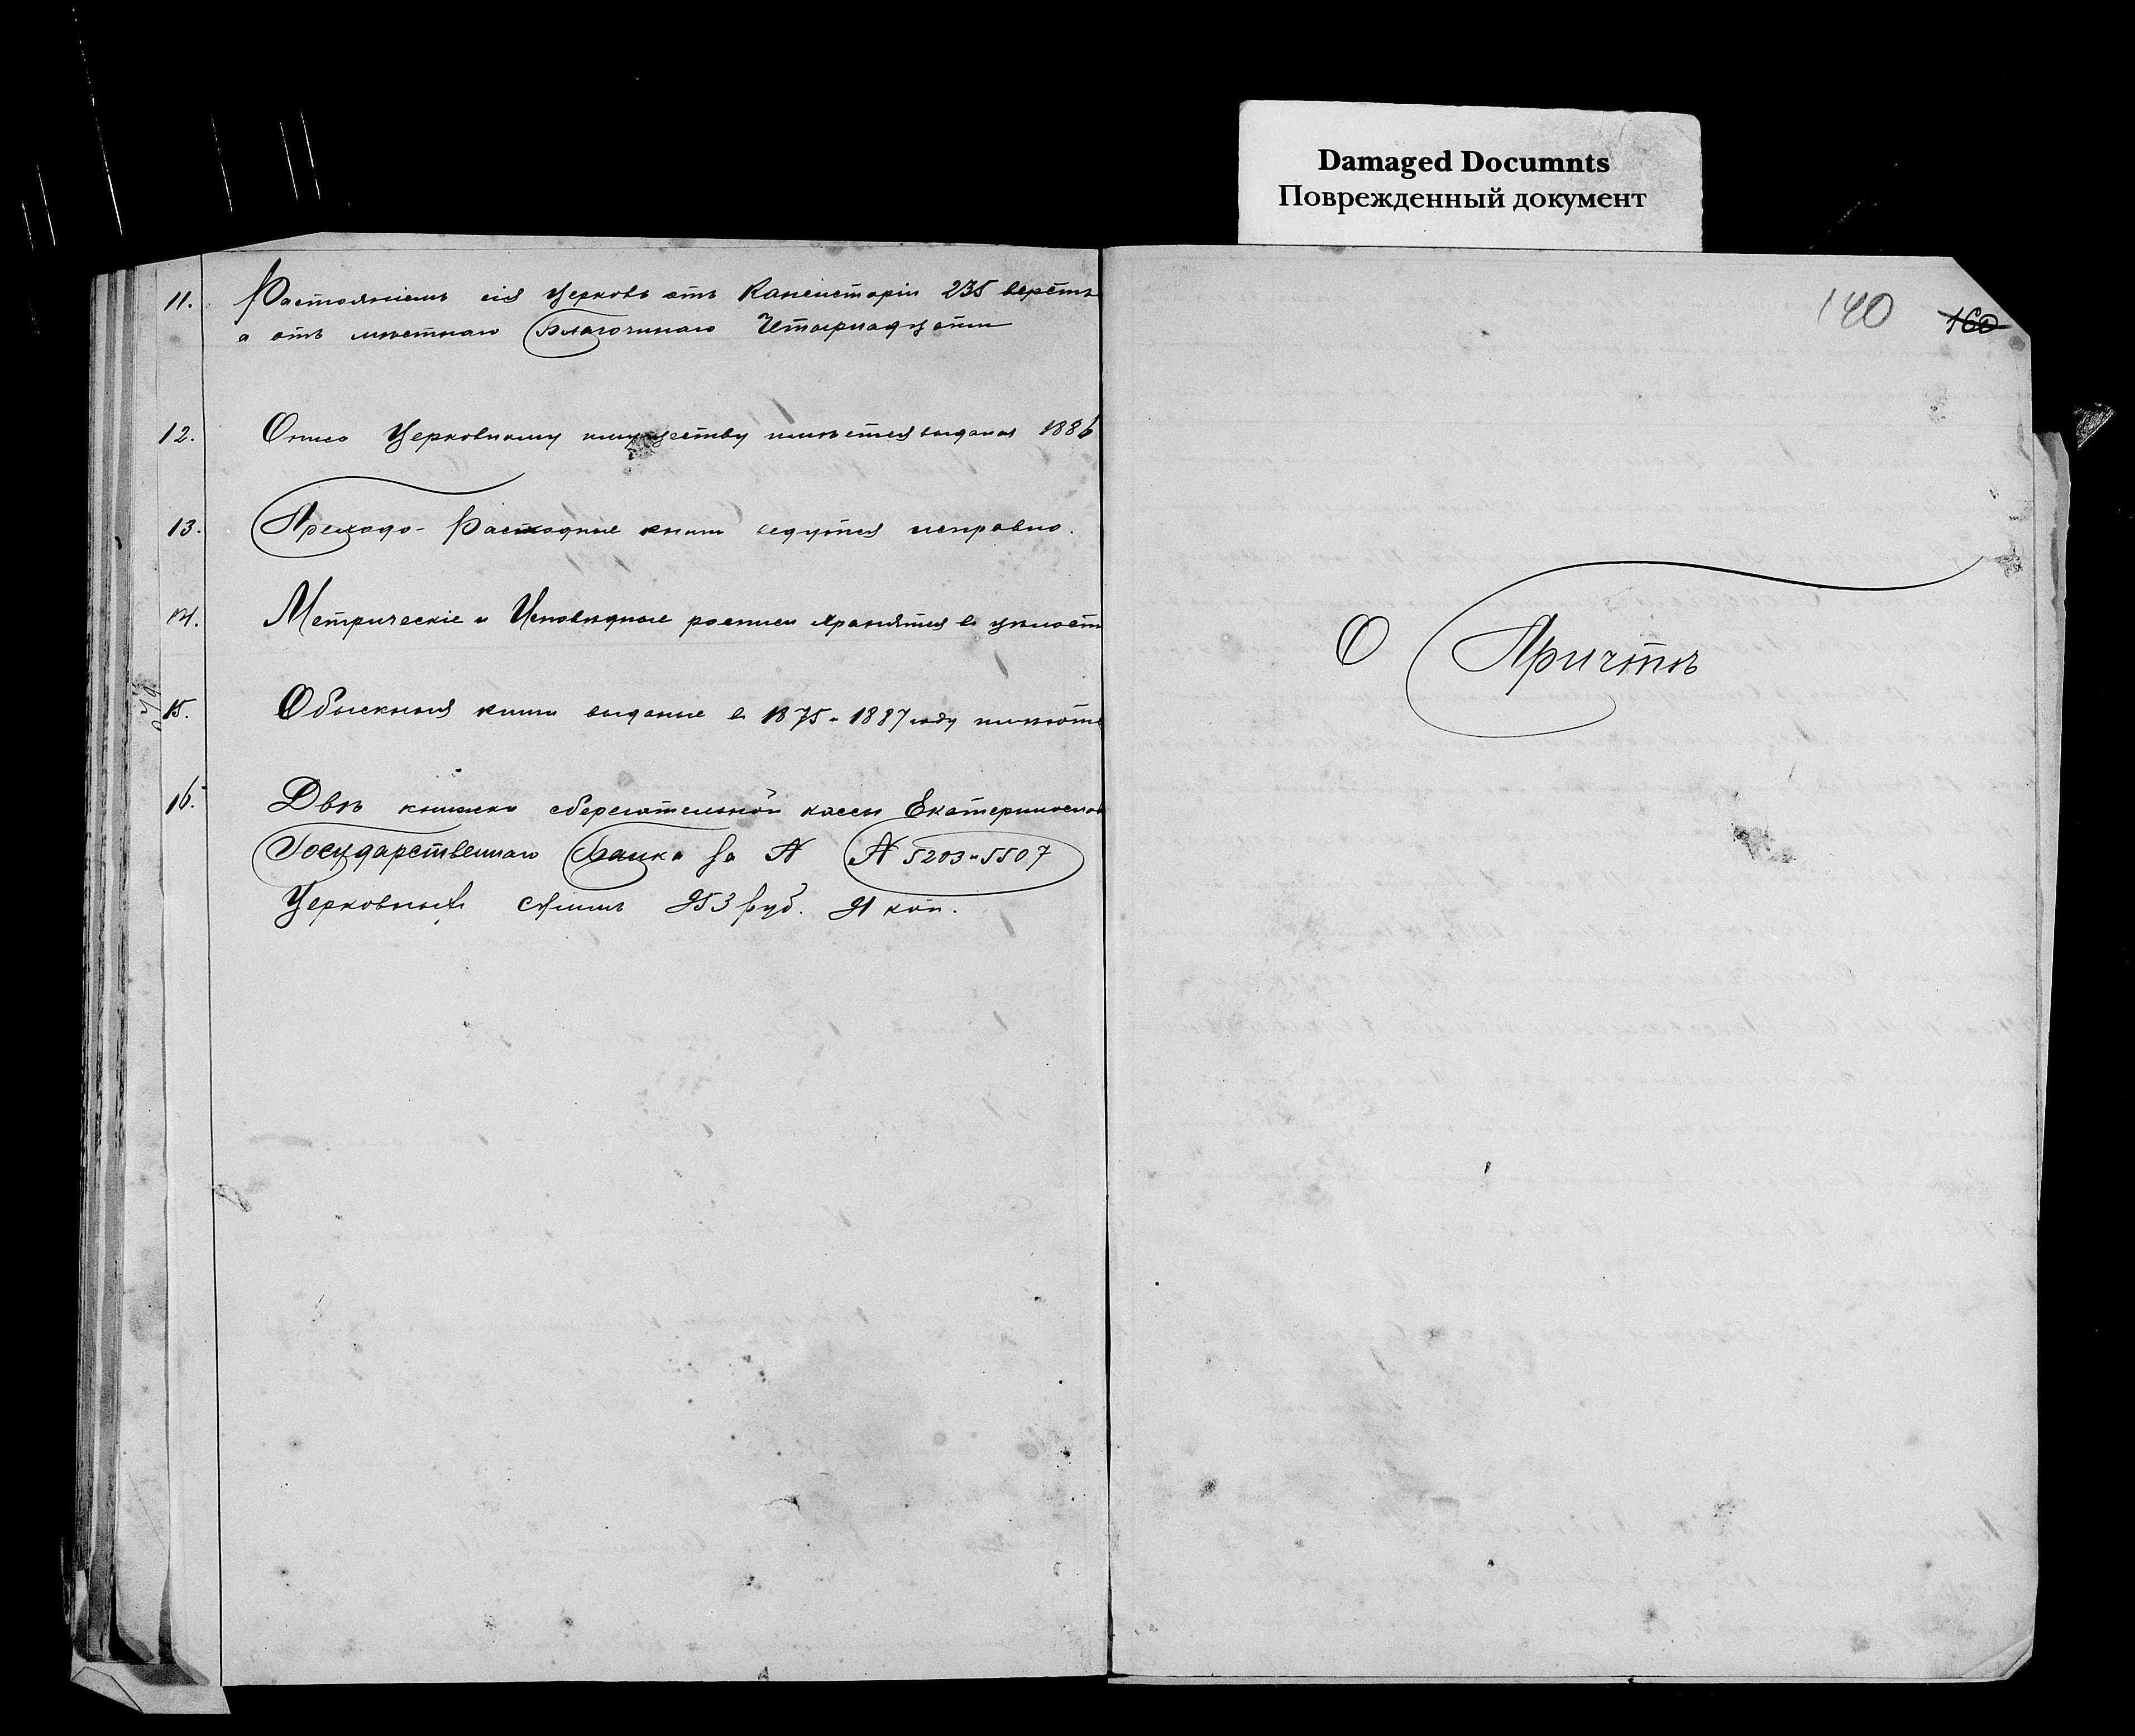 Damaged Documnts
Поврежденный документ
11. Растояніемъ сія Церковь отъ Канcисторіи 235 верстъ
а отъ местнаго Благочинаго Четырнадцати
12. Опись Церковному имуществу имѣется выданая 1886
13. Преходо-Расходные книги ведутся исправно.
14. Метрическіе и Исповѣдные росписи хранятся в целости
15. Обыскныя книги выданые в 1875 и 1887 году имѣютъ
16. Двѣ книжки сберегательной кассы Екатеринослав
Государственнаго Банка за N N 5203 и 5507
Церковныхъ суммъ 953 руб. 91 коп.
140 160
О Причтѣ